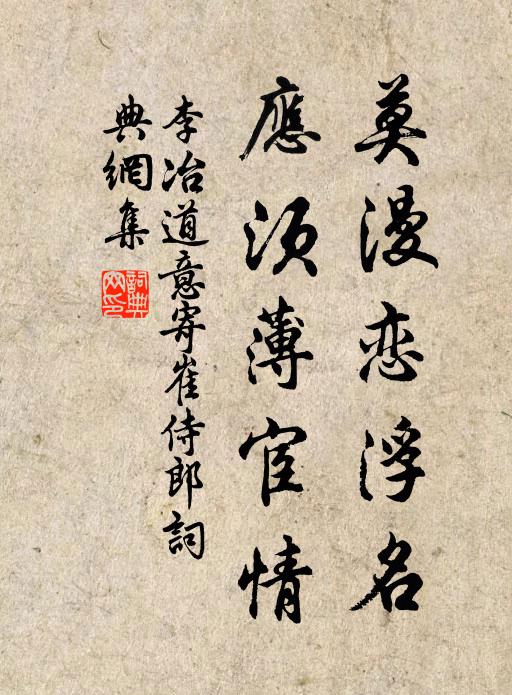 莫漫恋浮名
應須薄宦情
李冶道意寄崔侍郎詞
典網集
詞典网印